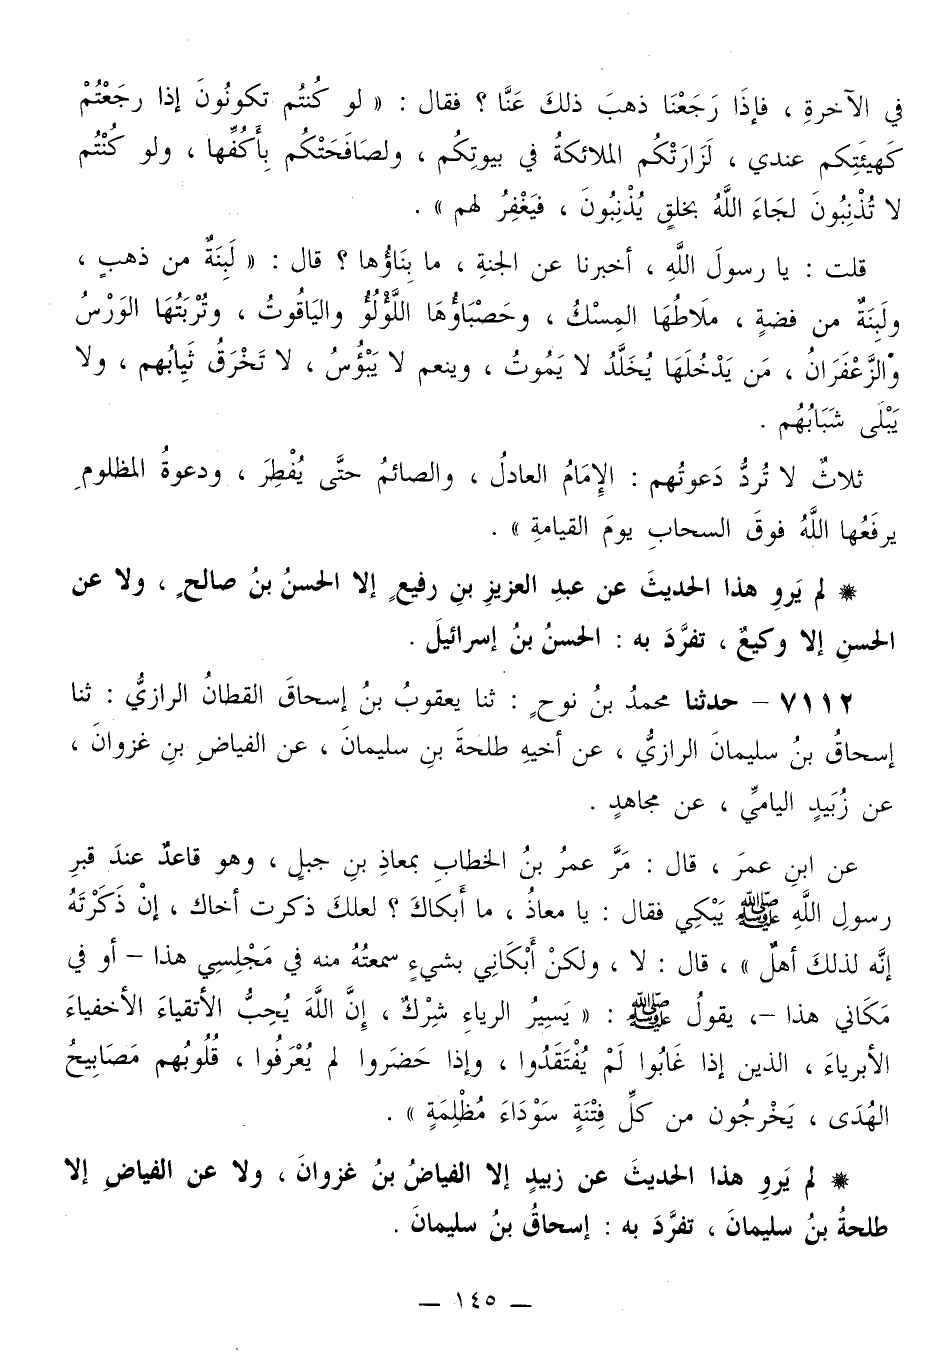 في الآخرةِ ، فإذَا رَجَعْنَا ذهبَ ذلكَ عَنَّا ؟ فقال : « لو كُنتُم تكونُونَ إذا رجَعْتُمْ
كَهيئَتِكم عندي ، لَزَارَتْكُم الملائكةُ في بيوتِكُم ، ولصافَحَتْكُم بِأَكُفِّها ، ولو كُنْتُم
لا تُذْنِبُونَ لجَاءَ اللَّهُ بخلقٍ يُذْنِبُونَ ، فيَغْفِرُ لهم » .
قلت : يا رسولَ اللَّهِ ، أخبرنا عن الجنةِ ، ما بِنَاؤُها ؟ قال : « لَبِنَةٌ من ذهبٍ ،
ولَبِنَةٌ من فضةٍ ، ملَاطُهَا المِسْكُ ، وحَصْبَاؤُهَا اللُّؤْلُؤُ واليَاقوتُ ، وتُرْبَتُهَا الوَرْسُ
والزَّعْفَرَانُ ، مَن يَدْخُلَهَا يُخَلَّدُ لا يَمُوتُ ، وينعم لا يَبْؤُسُ ، لا تَخْرَقُ ثِيابُهم ، ولا
يَبْلَى شَبَابُهُم .
ثلاثٌ لا تُردُّ دَعوتُهم : الإِمَامُ العادلُ ، والصائمُ حتَّى يُفْطِرَ ، ودعوةُ المظلومِ
يرفَعُها اللَّهُ فوقَ السحابِ يومَ القيامةِ » .
* لم يَروِ هذا الحديثَ عن عبدِ العزيزِ بنِ رفيعٍ إلا الحسنُ بنُ صالحٍ ، ولا عن
الحسنِ إلا وكيعٌ ، تفرَّدَ به : الحسنُ بنُ إسرائيلَ .
٧١١٢ – حدثنا محمدُ بنُ نوحٍ : ثنا يعقوبُ بنُ إسحاقَ القطانُ الرازيُّ : ثنا
إسحاقُ بنُ سليمانَ الرازيُّ ، عن أخيهِ طلحةَ بنِ سليمانَ ، عن الفياضِ بنِ غزوانَ ،
عن زُبَيدٍ الياميِّ ، عن مجاهدٍ .
عن ابنِ عمرَ ، قال : مَرَّ عمرُ بنُ الخطابِ بمعاذِ بنِ جبلٍ ، وهو قاعدٌ عندَ قبرِ
رسولِ اللَّهِ ﷺ يَبْكِي فقال : يا معاذُ ، ما أَبكاكَ ؟ لعلكَ ذكرت أخاك ، إنْ ذَكَرْتَهُ
إنَّه لذلكَ أهلٌ » ، قال : لا ، ولكنْ أَبْكَانِي بشيءٍ سمعتُهُ منه في مَجْلِسِي هذا – أو في
مَكَاني هذا –، يقولُ ﷺ : « يَسِيرُ الرياءِ شِرْكٌ ، إِنَّ اللَّهَ يُحِبُّ الأتقياءَ الأخفياءَ
الأبرياءَ ، الذين إذا غَابُوا لَمْ يُفْتَقَدُوا ، وإذا حَضَروا لم يُعْرَفُوا ، قُلُوبُهم مَصَابِيحُ
الهُدَى ، يَخْرجُون من كلِّ فِتْنَةٍ سَوْدَاءَ مُظْلِمَةٍ » .
* لم يَروِ هذا الحديثَ عن زبيدٍ إلا الفياضُ بنُ غزوانَ ، ولا عن الفياضِ إلا
طلحةُ بنُ سليمانَ ، تفرَّدَ به : إسحاقُ بنُ سليمانَ .
– ١٤٥ –